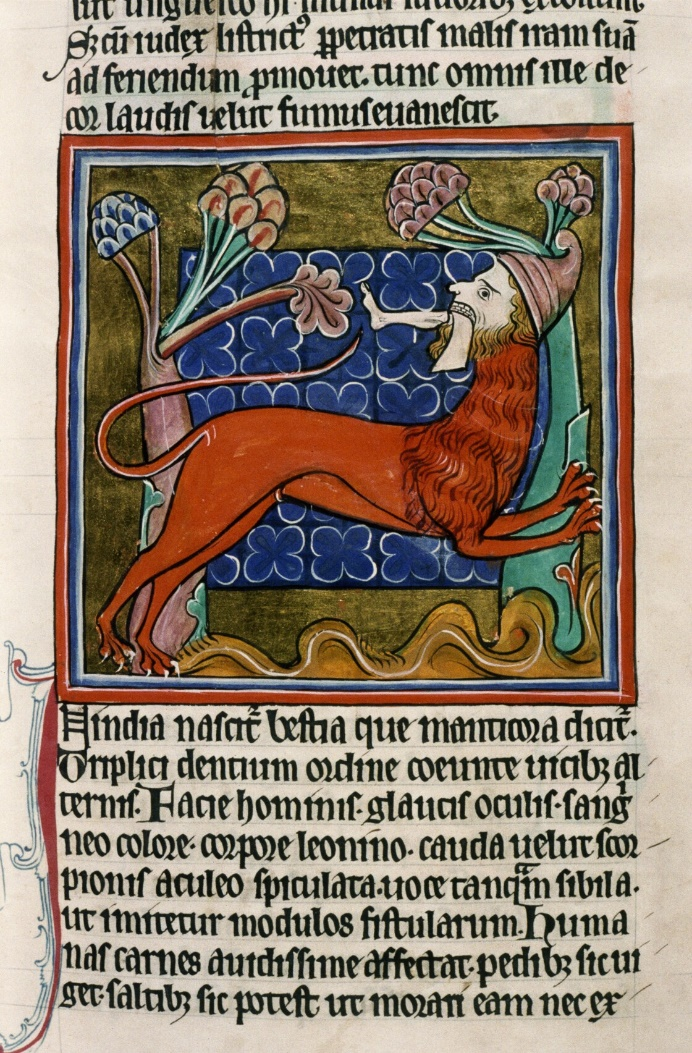 Sꝫ cū iudex districtꝰ ꝑpetratis malis iram suā
ad feriendum ꝓmouet. tunc omnis ille de
cor laudis uelut fumus euanescit.
Nindia nascit̄ bestia que manticora dicit̄.
Triplici dentium ordine coeunte uicibꝫ al
ternis. Facie hominis. glaucis oculis. sang
neo colore. corpore leonino. cauda uelut scor
pionis aculeo spiculata. uoce tanqᵃm sibila.
ut imitetur modulos fistularum. Huma
nas carnes auidissime affectat. pedibꝫ sic ui
get. saltibꝫ sic potest ut morari eam nec ex